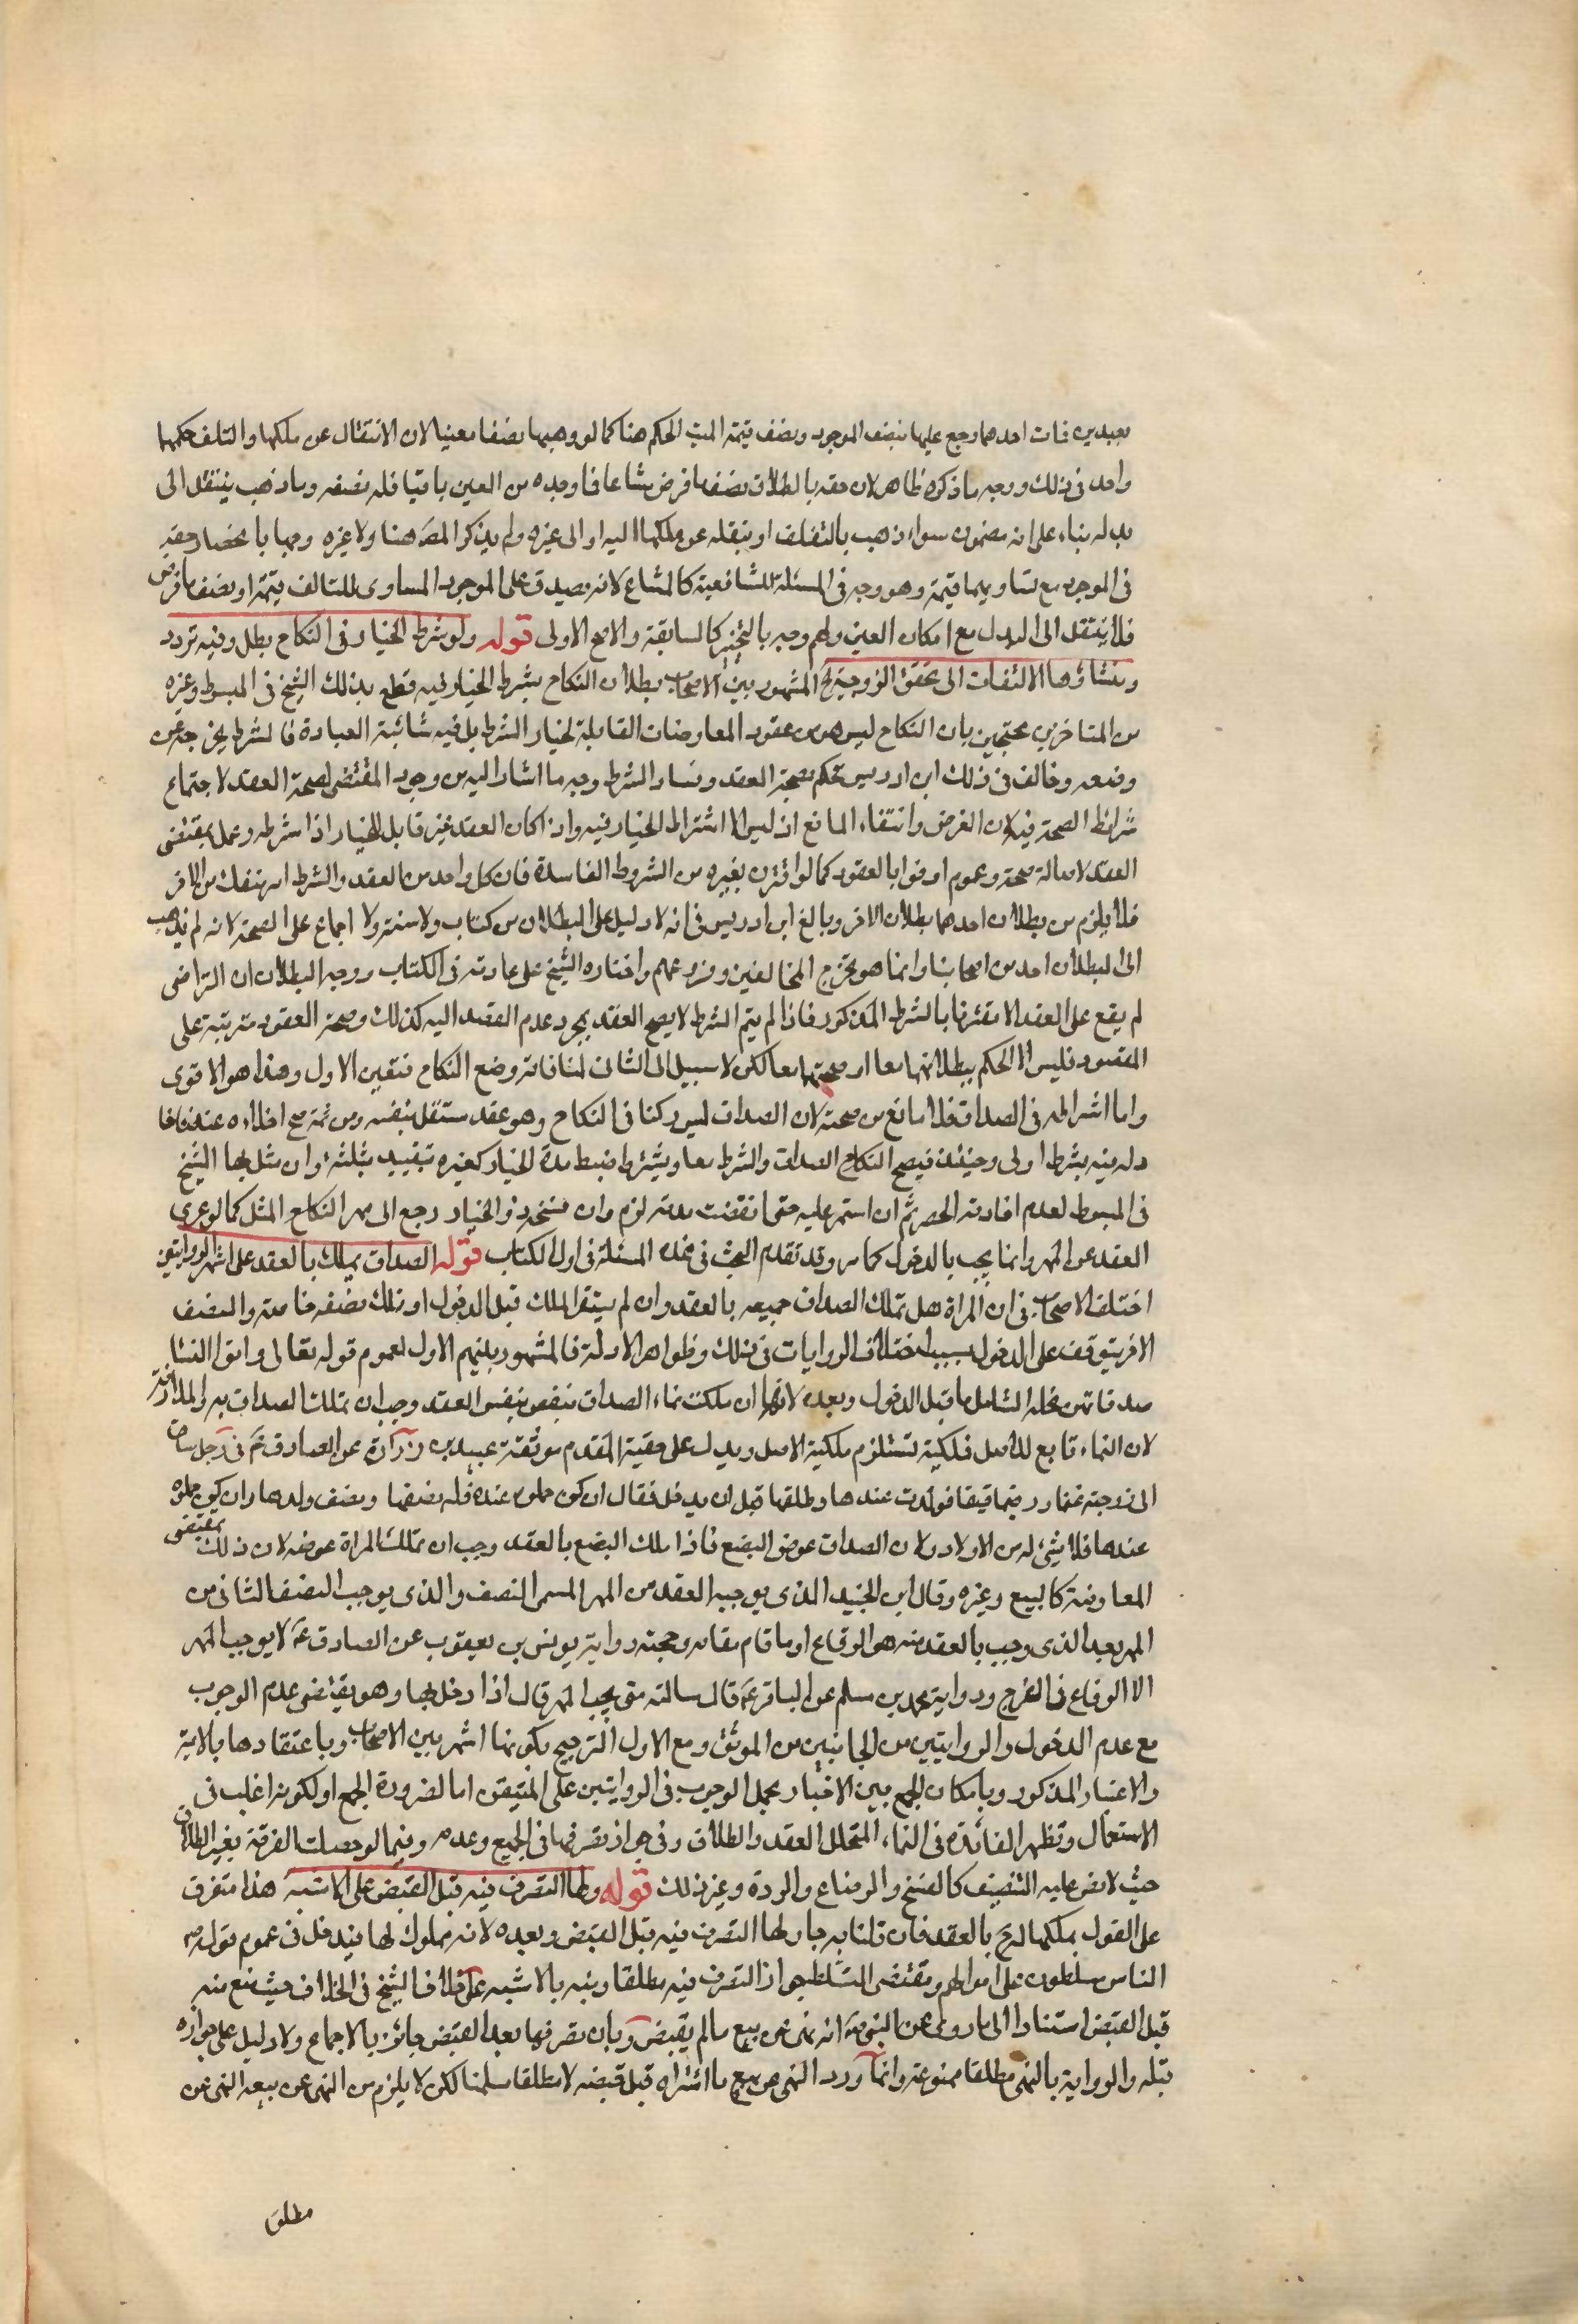 بعبدين فمات احدهما رجع عليها بنصف الموجود ونصف قيمة الميت الحكم هنا كما لو وهبها نصفا معينا لان الانتقال عن ملكها والتلف حكمهما
واحد في ذلك ووجه ما ذكره ظاهر لان حقه بالطلاق نصف ما فرض مشاعا فما وجده من العين باقيا فله نصفه وما ذهب ينتقل الى
بدله بناء على انه مضمون سواء ذهب بالتلف او بنقله عن ملكها اليه او الى غيره ولم يذكر المصَ هنا ولا غيره وجها بانحصار حقه
في الموجود مع تساويهما قيمة وهو وجه في المسئلة للشافعية كالمشاع لانه يصدق على الموجود المساوى للتالف قيمة او نصف ما فرض
فلا ينتقل الى البدل مع امكان العين ولهم وجه بالتخيير كالسابقة والاصح الاولى قوله ولو شرط الخيار في النكاح بطل وفيه تردد
ومنشاؤها الالتفات الى تحقق الزوجية الخ المشهور بين الاصحاب بطلان النكاح بشرط الخيار فيه قطع بذلك الشيخ في المبسوط وغيره
من المتاخرين محتجين بان النكاح ليس هو من عقود المعاوضات القابلة لخيار الشرط بل فيه شائبة العبادة فالشرط يخرجه عن
وضعه وخالف في ذلك ابن ادريس فحكم بصحة العقد وفساد الشرط وجه ما اشار اليه من وجود المقتضى لصحة العقد لاجتماع
شرائط الصحة فيه لان الفرض وانتفاء المانع اذ ليس الا اشتراط الخيار فيه واذا كان العقد غير قابل للخيار اذا شرطه وعمل بمقتضى
العقد لاصالة صحته وعموم اوفوا بالعقود كما لو اقترن بغيره من الشروط الفاسدة فان كل واحد من العقد والشرط امر منفك من الاخر
فلا يلزم من بطلان احدهما بطلان الاخر وبالغ ابن ادريس في انه لا دليل على البطلان من كتاب ولا سنة ولا اجماع على الصحة لانه لم يذهب
الى البطلان احد من اصحابنا وانما هو تخريج المخالفين وفروعهم واختاره الشيخ على عادته في الكتاب ووجه البطلان ان التراضى
لم يقع على العقد الا مقترنا بالشرط المذكور فاذا لم يتم الشرط لا يصح العقد بمجرد عدم القصد اليه كذلك وصحة العقود مترتبة على
القصود فليس الا الحكم ببطلانهما معا او صحتهما معا لكن لا سبيل الى الثانى لمنافاته وضع النكاح فتعين الاول وهذا هو الاقوى
واما اشتراطه في الصداق فلا مانع من صحته لان الصداق ليس ركنا في النكاح وهو عقد مستقل بنفسه ومن ثمة صح اخلاؤه عنه
دله فيه بشرط اولى وحينئذ فيصح النكاح الصداق والشرط معا ويشترط ضبط مدة الخيار كغيره تقييد بثلثة وان مثل بها الشيخ
في المبسوط لعدم افادته الحصر ثم ان استمر عليه حتى انقضت مدته لزم وان فسخه ذو الخيار رجع الى مهر النكاح المثل كما لو عرى
العقد عن المهر وانما يجب بالدخول كما مر وقد تقدم البحث في هذه المسئلة في اول الكتاب قوله الصداق يملك بالعقد على اشهر الروايتين
اختلف الاصحاب في ان المراة هل تملك الصداق جميعه بالعقد وان لم يستقر الملك قبل الدخول او تملك نصفه خاصة والنصف
الاخر يتوقف على الدخول بسبب اختلاف الروايات في ذلك وظواهر الادلة فالمشهور بينهم الاول لعموم قوله تعالى واتوا النسا
صدقاتهن نحلة الشامل ما قبل الدخول وبعده لانها ان ملكت نماء الصداق بنفس العقد وجب ان تملك الصداق به والملازمة
لان النماء تابع للاصل فملكية تستلزم ملكية الاصل ويدل على حقية المقدم موثقة عبيد بن زرارة عن الصادق عَ في رجل ساق
الى زوجته غنما ورقيقا فولدت عندها وطلقها قبل ان يدخل فقال ان كن حملن عنده فله نصفها ونصف ولدها وان كن حملن
عندها فلا شئ له من الاولاد ولان الصداق عوض البضع فاذا ملك البضع بالعقد وجب ان تملك المراة عوضه لان ذلك مقتضى
المعاوضة كالبيع وغيره وقال ابن الجنيد الذى يوجبه العقد من المهر المسمى النصف والذى يوجب النصف الثانى من
المهر بعد الذى وجب بالعقد منه هو الوقاع او ما قام مقامه وحجته رواية يونس بن يعقوب عن الصادق عَ لا يوجب المهر
الا الوقاع في الفرج ورواية محمد بن مسلم عن الباقر عَ قال سالته متى يجب المهر قال اذا دخل بها وهو يقتضى عدم الوجوب
مع عدم الدخول والروايتين من الجانبين من الموثق ومع الاول الترجيح بكونها اشهر بين الاصحاب وباعتضادها بالاية
والاعتبار المذكور وبامكان الجمع بين الاخبار بحمل الوجوب في الروايتين على المتيقن اما لضرورة الجمع او لكونه اغلب في
الاستعمال وتظهر الفائدة في النماء المتخلل العقد والطلاق وفي جواز تصرفها في الجميع وعدمه وفيما لو حصلت الفرقة بغير الطلاق
حيث لا نص عليه التنصيف كالفسخ والرضاع والردة وغير ذلك قوله ولها التصرف فيه قبل القبض على الاشبه هذا متفرع
على القول بملكها له بالعقد فان قلنا به جاز لها التصرف فيه قبل القبض وبعده لانه مملوك لها فيدخل في عموم قوله صَ
الناس مسلطون على اموالهم ومقتضى التسلط جواز التصرف فيه مطلقا ونبه بالاشبه على خلاف الشيخ في الخلاف حيث منع منه
قبل القبض استنادا الى ما روى عن النبى صَ انه نهى عن بيع ما لم يقبض وبان تصرفها بعد القبض جائز بالاجماع ولا دليل على جوازه
قبله والرواية بالنهى مطلقا ممنوعة وانما ورد النهى عن بيع ما اشتراه قبل قبضه لا مطلقا سلمنا لكن لا يلزم من النهى عن بيعه النهى عن
مطلق